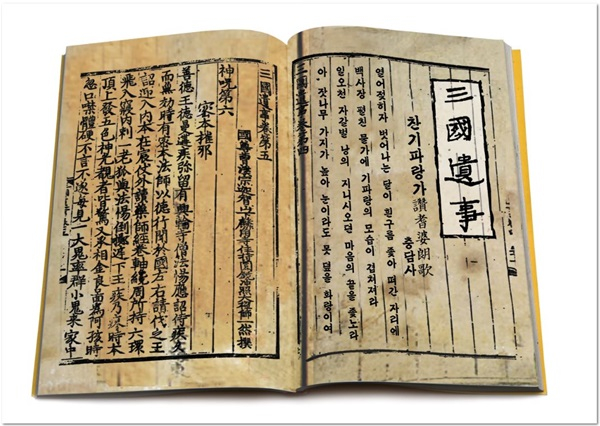 三國遺事
찬기파랑가 讚耆婆朗歌
충담사
열어젖히자 벗어나는 달이 흰구름 좇아 떠간 자리에
백사장 펼친 물가에 기파랑의 모습이 겹쳐져라
일오천 자갈벌 낭의 지니시오던 마음의 끝을 좇노라
아, 잣나무 가지가 높아 눈이라도 못 덮을 화랑이여
三國遺事卷第四
三國遺事卷第五
國尊曹溪宗迦智山下麟角寺住持圓鏡冲照大禪師一然撰
神呪第六
密本摧邪
善德王德曼遘疾弥留有興輪寺僧法惕應詔侍疾久
而無効時有密本法師以德行聞於國左右請代之王
詔迎入內本在宸仗外讀藥師經卷軸纔周所持六環
飛入寢內刺一老狐與法惕倒擲庭下王疾乃瘳時本
頂上發五色神光覩者皆驚又承相金良圖爲阿孩時
忽口噤體硬不言不遂每見一大鬼率群小鬼來家中